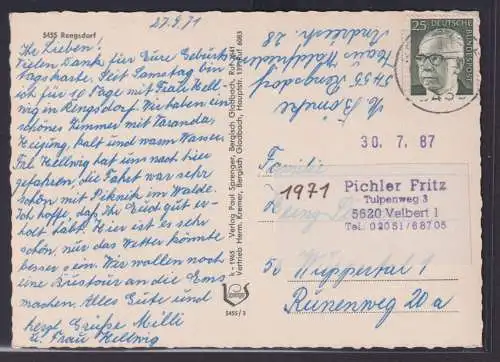 27.9.71
5455 Rengsdorf
Ihr Lieben!
Vielen Dank für Eure Geburts
tagskarte. Seit Samstag bin
ich für 10 Tage mit Frau Hell-
wig in Rengsdorf. Wir haben ein
schönes Zimmer mit Veranda,
Heizung, kalt und warm Wasser.
Frl. Hellwig hat uns nach hier
gefahren, die Fahrt war sehr
schön mit Piknik im Walde.
Ich hoffe, daß Ihr Euch gut er-
holt habt. Hier ist es sehr
schön, nur das Wetter könnte
besser sein. Wir wollen noch
eine Bustour an die Ems
machen. Alles Gute und
herzl. Grüße Milli
u. Frau Hellwig
k - 1965 Verlag Paul Sprenger, Bergisch Gladbach, Ruf
Vertrieb: Herm. Kremer, Bergisch Gladbach, Hauptstr. Ruf 6083
5455/3
5455 Rengsdorf
Haus
28
25 DEUTSCHE BUNDESPOST
30. 7. 87
Familie
1971
Pichler Fritz
Tulpenweg 3
5620 Velbert 1
Tel. 02051/68705
56 Wuppertal 1
Runenweg 20a